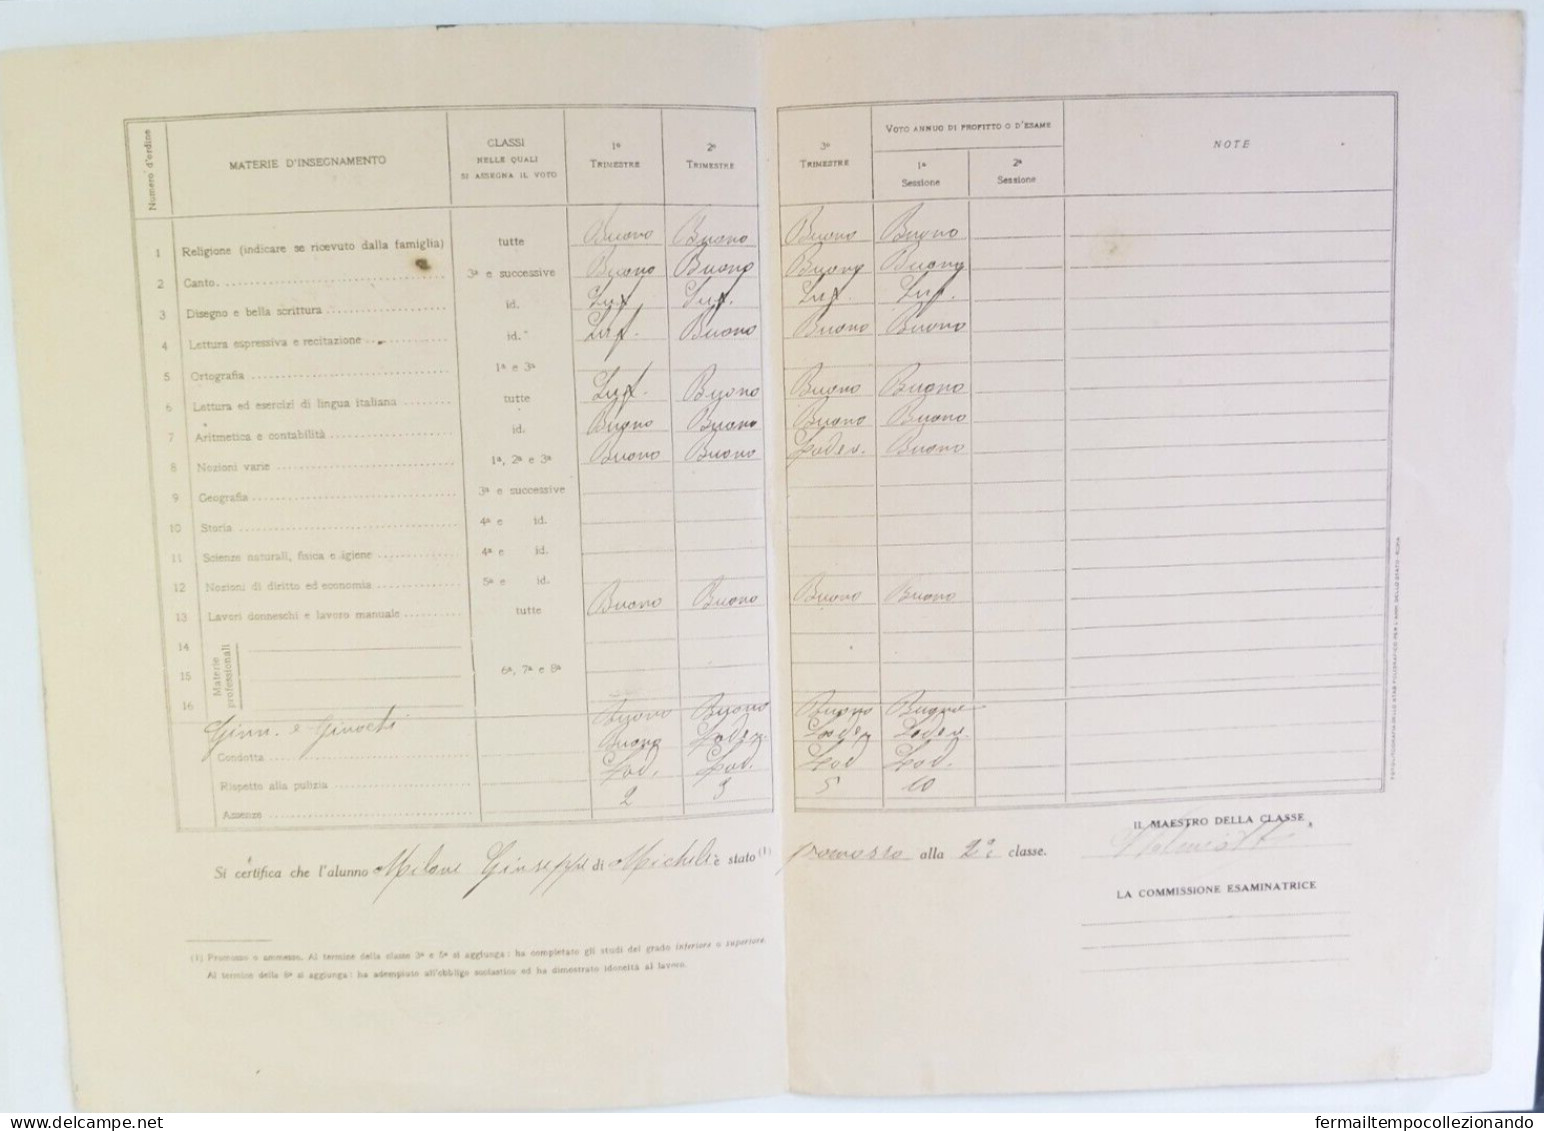 Numero d'ordine
MATERIE D'INSEGNAMENTO
CLASSI
NELLE QUALI
SI ASSEGNA IL VOTO
1º
TRIMESTRE
2º
TRIMESTRE
3º
TRIMESTRE
VOTO ANNUO DI PROFITTO O D'ESAME
1ª
Sessione
2ª
Sessione
NOTE
1 Religione (indicare se ricevuto dalla famiglia) tutte Buono Buono Buono Buono
2 Canto 3ª e successive Buono Buono Buono Buono
3 Disegno e bella scrittura id. Suf. Suf. Suf. Suf.
4 Lettura espressiva e recitazione id. Suf. Buono Buono Buono
5 Ortografia 1ª e 3ª
6 Lettura ed esercizi di lingua italiana tutte Suf. Buono Buono Buono
7 Aritmetica e contabilità id. Buono Buono Buono Buono
8 Nozioni varie 1ª, 2ª e 3ª Buono Buono Lodev. Buono
9 Geografia 3ª e successive
10 Storia 4ª e id.
11 Scienze naturali, fisica e igiene 4ª e id.
12 Nozioni di diritto ed economia 5ª e id.
13 Lavori donneschi e lavoro manuale tutte Buono Buono Buono Buono
14
15 Materie professionali 6ª, 7ª e 8ª
16
Ginn. e Giuochi Buono Buono Buono Buono
Condotta Buono Lodev. Lodev Lodev.
Rispetto alla pulizia Lod. Lod. Lod Lod.
Assenze 2 3 5 10
Si certifica che l'alunno Milone Giuseppe di Michele è stato (1) promosso alla 2ª classe.
IL MAESTRO DELLA CLASSE
LA COMMISSIONE ESAMINATRICE
(1) Promosso o ammesso. Al termine della classe 3ª e 5ª si aggiunga: ha completato gli studi del grado inferiore o superiore.
Al termine della 8ª si aggiunga: ha adempiuto all'obbligo scolastico ed ha dimostrato idoneità al lavoro.
fermailtempocollezionando